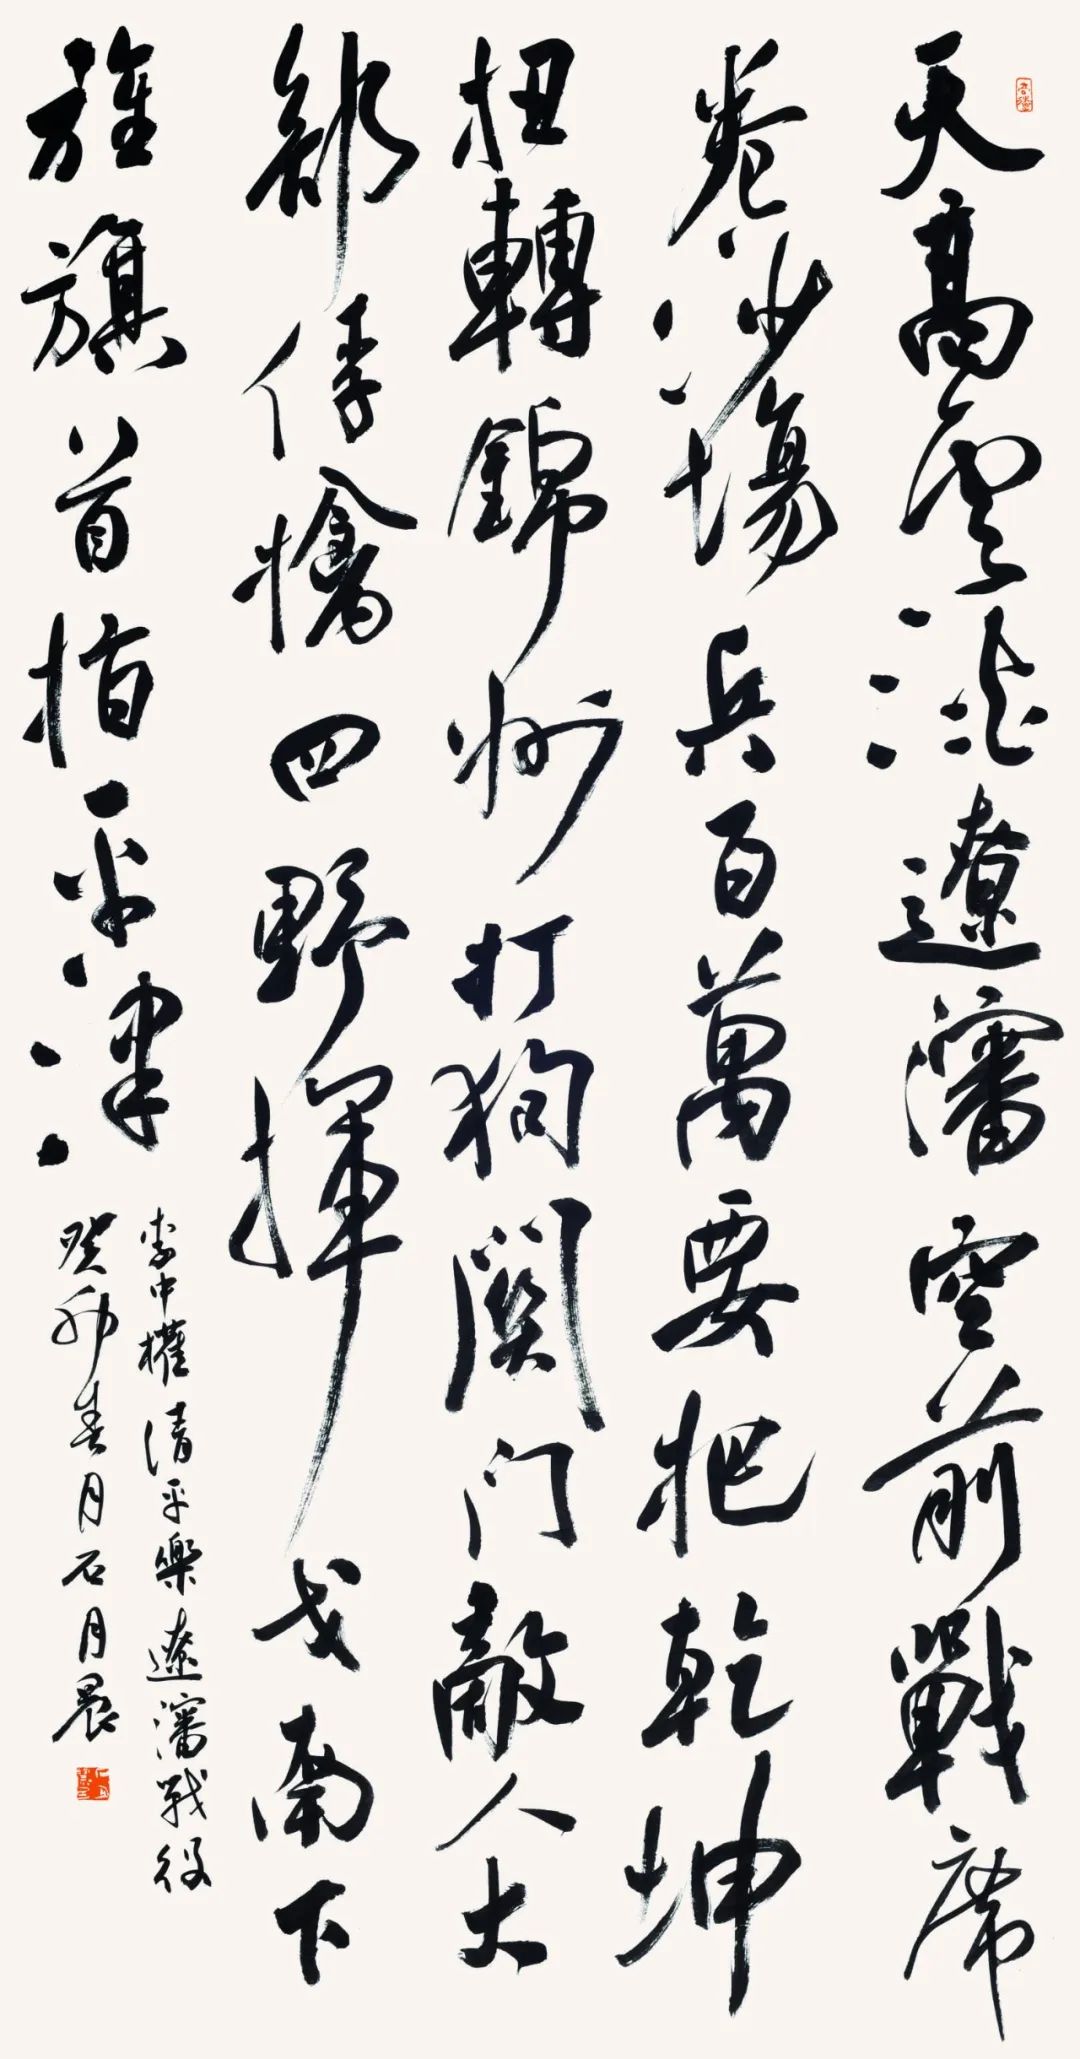 天高雲淡遼瀋空前戰席
卷沙場兵百萬要把乾坤
扭轉錦州打狗關门敵人大
部俘擒四野揮戈南下
旌旗首指平津
李中權清平樂遼瀋戰役
癸卯春月石月晨